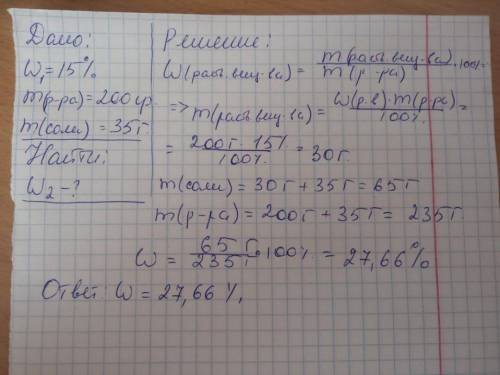 Дано:
W₁ = 15%
m(р-ра) = 200 гр.
m(соли) = 35 г
Найти:
W₂ - ?
Решение:
W(раств. вещ-ва) = m(раств. вещ-ва) / m(р-ра) · 100%
=> m(раств. вещ-ва) = W(р.в) · m(р-ра) / 100% =
= 200 г · 15% / 100% = 30 г.
m(соли) = 30 г + 35 г = 65 г
m(р-ра) = 200 г + 35 г = 235 г
W = 65 г / 235 г · 100% = 27,66%
Ответ: W = 27,66%.